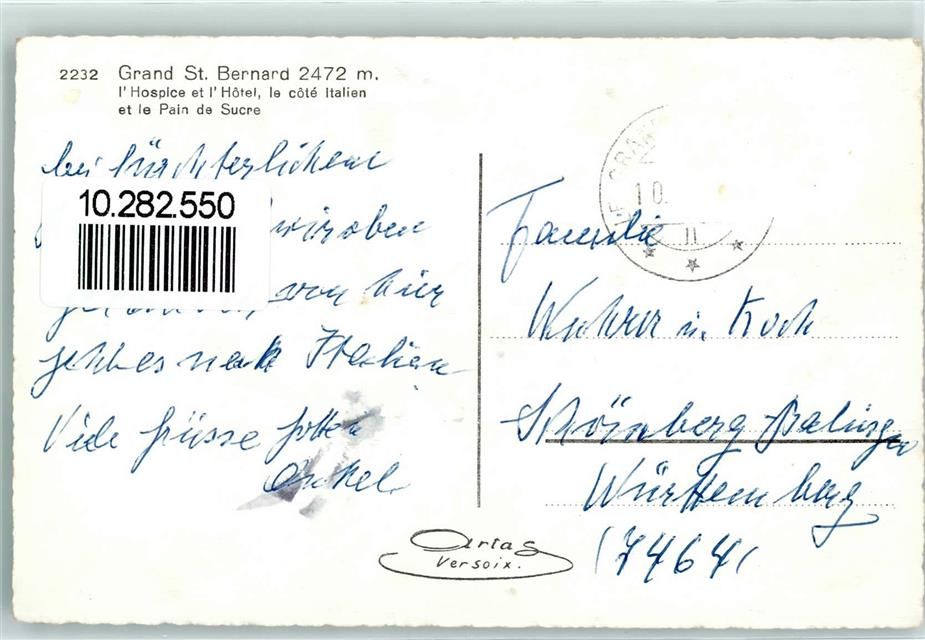 2232 Grand St. Bernard 2472 m.
l'Hospice et l'Hôtel, le côté Italien
et le Pain de Sucre
bei fürchterlichem
10.282.550
wir oben
von hier
geht es nach Italien
Viele Grüsse
Onkel
GRAN
10.
II
Familie
u. Koch
Schömberg Balingen
Württemberg
(7464)
Artas
Versoix.